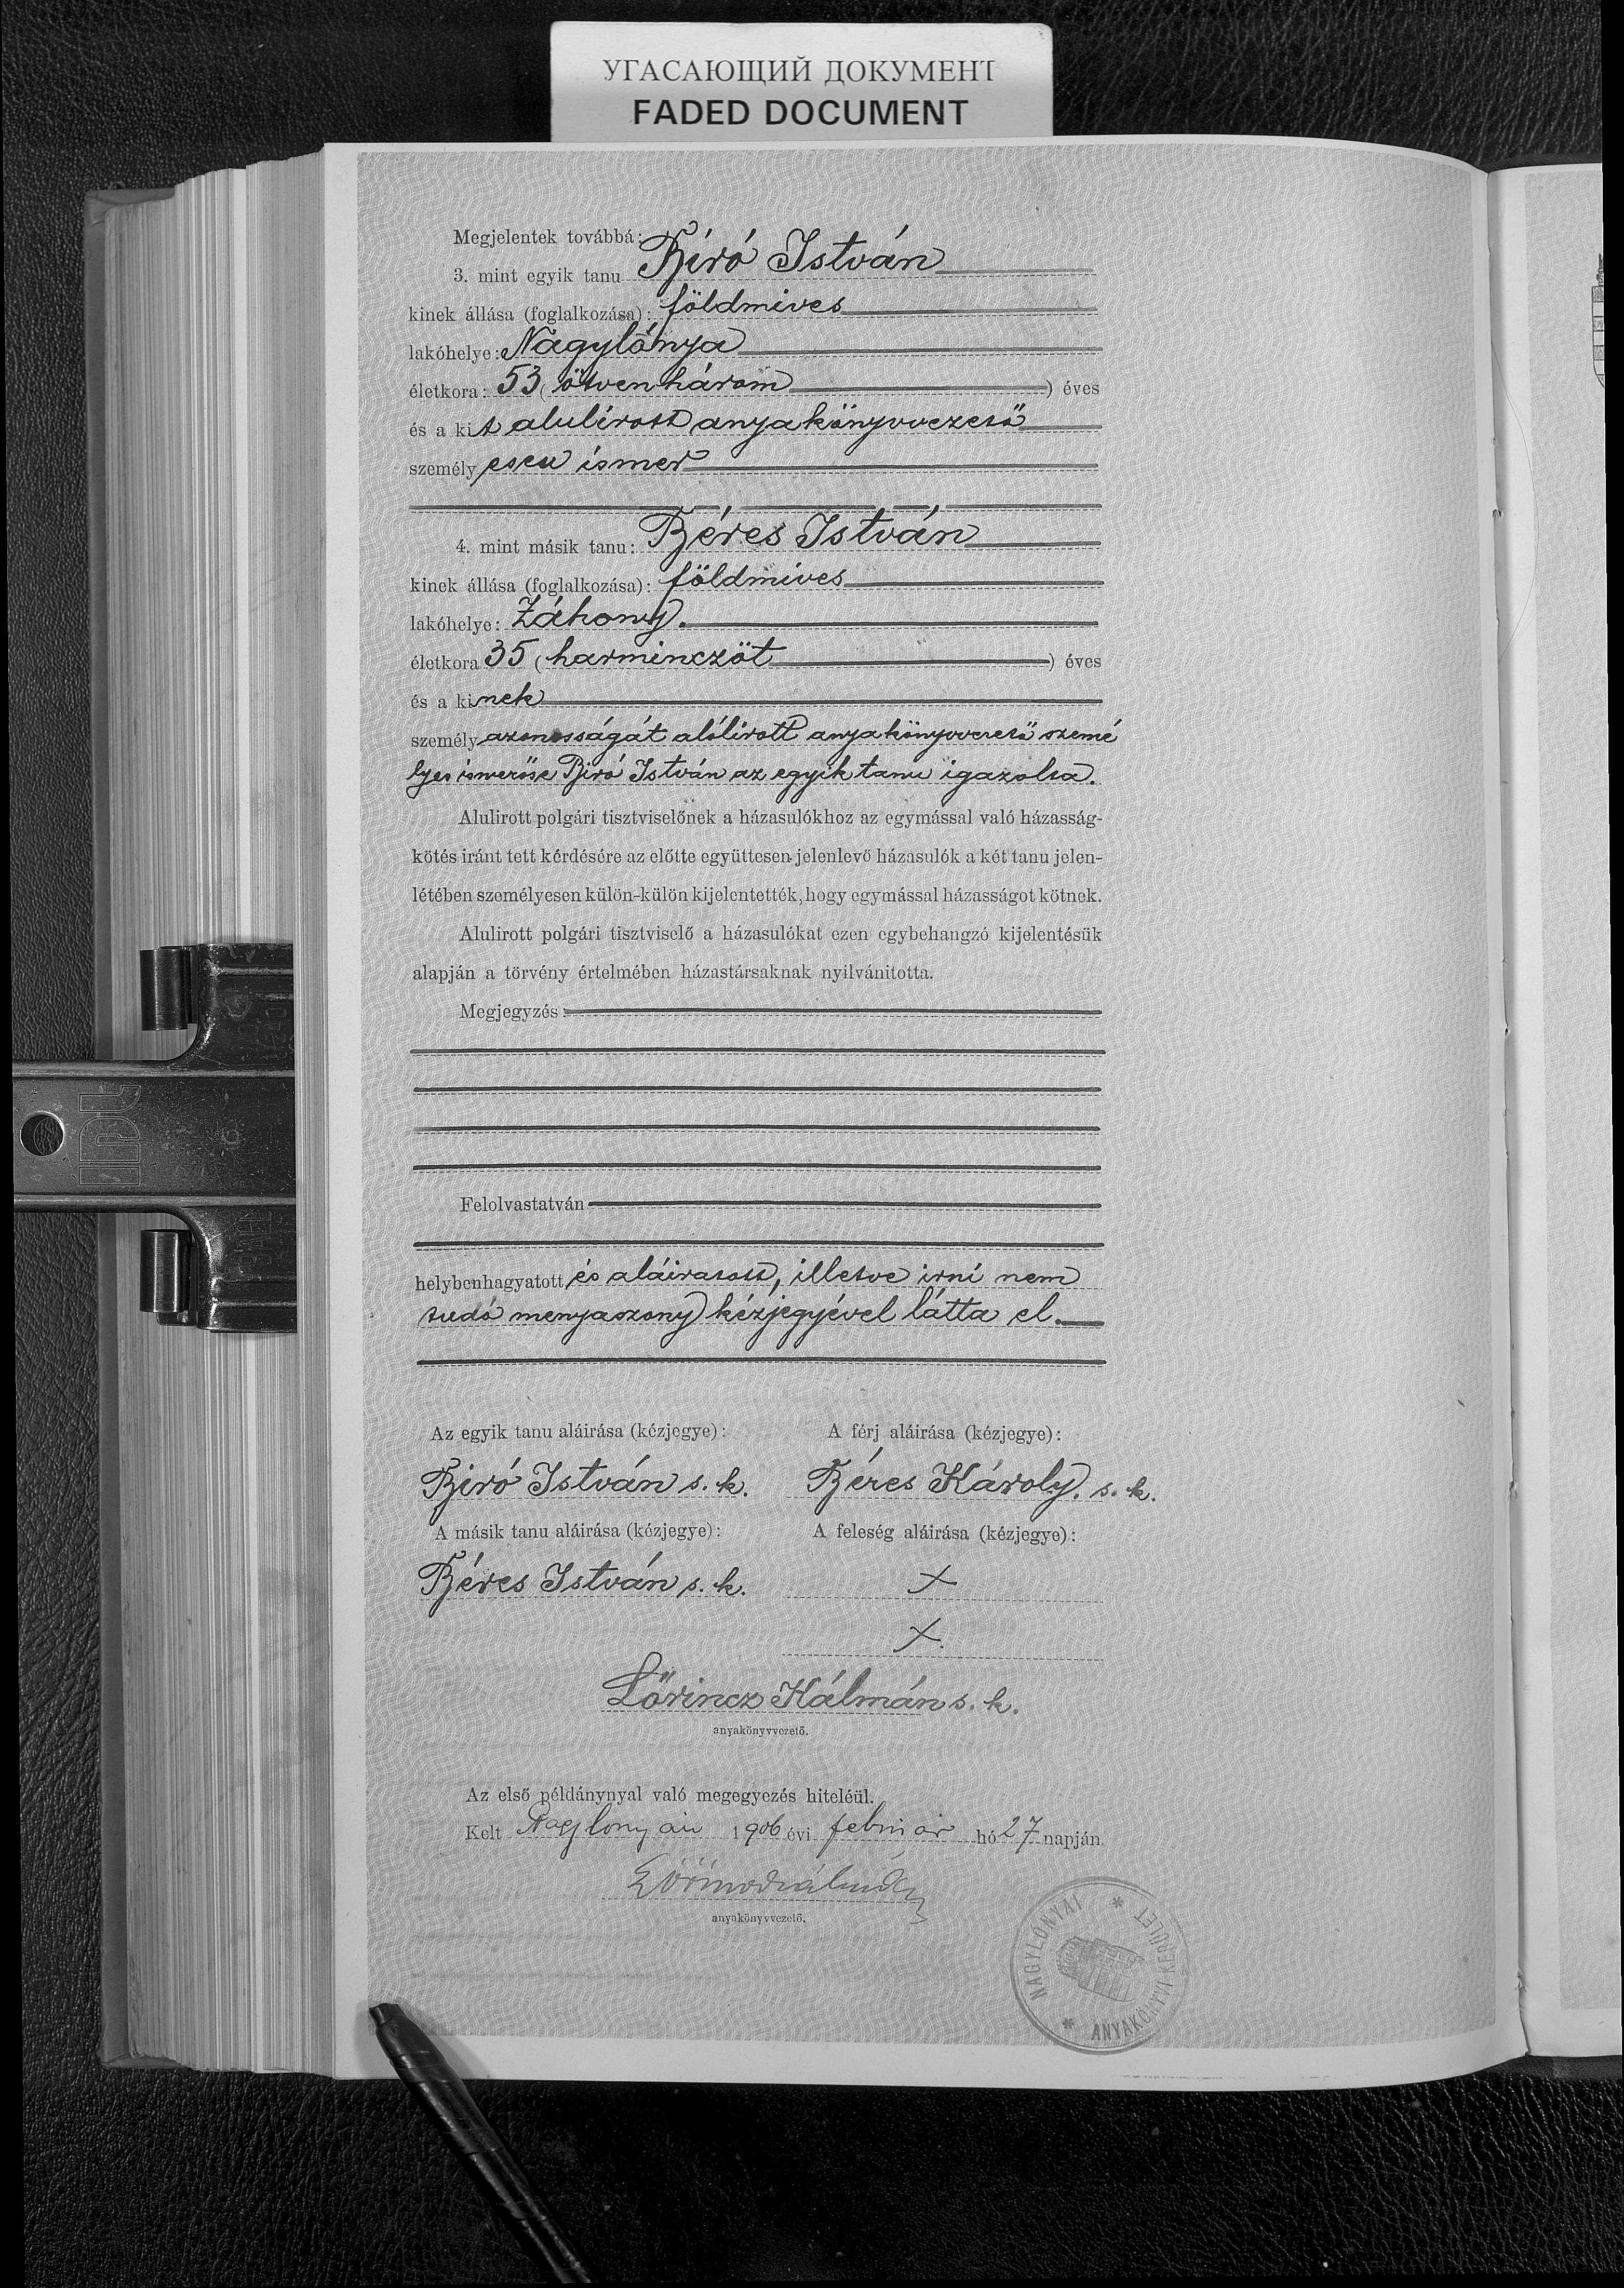 УГАСАЮЩИЙ ДОКУМЕНТ
FADED DOCUMENT
Megjelentek továbbá:
3. mint egyik tanu Biró István
kinek állása (foglalkozása): földmives
lakóhelye: Nagylónya
életkora: 53 (ötvenhárom) éves
és a kit alulirott anyakönyvvezető
személyesen ismer
4. mint másik tanu: Béres István
kinek állása (foglalkozása): földmives
lakóhelye: Záhony.
életkora 35 (harminczöt) éves
és a kinek
személyazonosságát alólirott anyakönyvvezető szemé
lyes ismerőse Biró István az egyik tanu igazolta.
Alulirott polgári tisztviselőnek a házasulókhoz az egymással való házasság-
kötés iránt tett kérdésére az előtte együttesen jelenlevő házasulók a két tanu jelen-
létében személyesen külön-külön kijelentették, hogy egymással házasságot kötnek.
Alulirott polgári tisztviselő a házasulókat ezen egybehangzó kijelentésük
alapján a törvény értelmében házastársaknak nyilvánitotta.
Megjegyzés:
Felolvastatván
helybenhagyatott és aláiratott, illetve irni nem
tudó menyaszony kézjegyével látta el.
Az egyik tanu aláirása (kézjegye): A férj aláirása (kézjegye):
Biró István s. k. Béres Károly. s. k.
A másik tanu aláirása (kézjegye): A feleség aláirása (kézjegye):
Béres István s. k. X
X.
Lőrincz Kálmán s. k.
anyakönyvvezető.
Az első példánynyal való megegyezés hiteléül.
Kelt Nagylonyán 1906 évi február hó 27 napján.
anyakönyvvezető.
NAGYLÓNYAI * ANYAKÖNYVI KERÜLET *